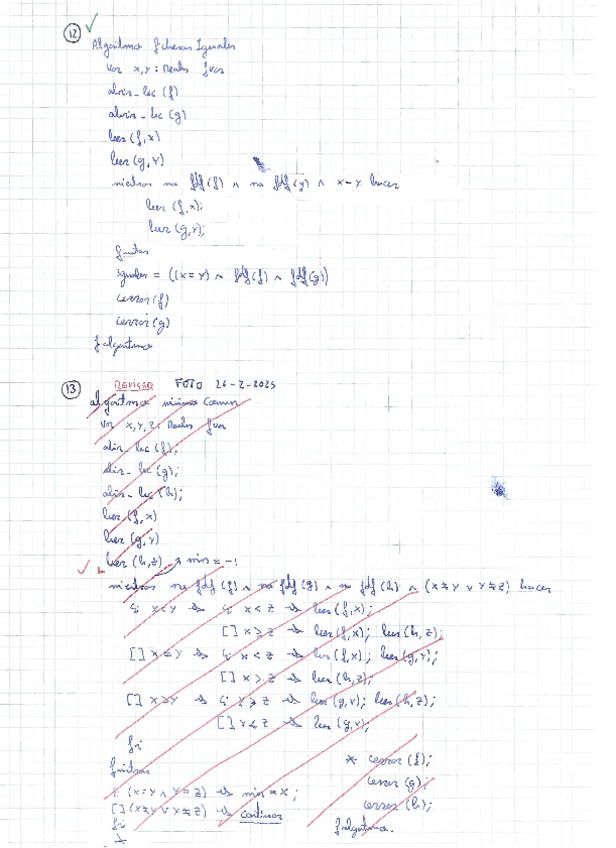 12 ✓
Algoritmo ficheros Iguales
var x, y : Reales fvar
abrir_lec (f)
abrir_lec (g)
leer (f, x)
leer (g, y)
mientras no fdf (f) ∧ no fdf (g) ∧ x = y hacer
leer (f, x);
leer (g, y);
fmientras
iguales = ((x = y) ∧ fdf (f) ∧ fdf (g))
cerrar (f)
cerrar (g)
falgoritmo
13 REVISAR FOTO 26-2-2025
algoritmo mínimo Comun
var x, y, z : Reales fvar
abrir_lec (f);
abrir_lec (g);
abrir_lec (h);
leer (f, x)
leer (g, y)
✓ leer (h, z) min = -1
mientras no fdf (f) ∧ no fdf (g) ∧ no fdf (h) ∧ (x ≠ y ∨ y ≠ z) hacer
si x < y → si x < z → leer (f, x);
[] x ≥ z → leer (f, x); leer (h, z);
[] x = y → si x < z → leer (f, x); leer (g, y);
[] x > z → leer (h, z);
[] x > y → si y ≥ z → leer (g, y); leer (h, z);
[] y < z → leer (g, y);
fsi
fmientras
si (x = y ∧ y = z) → min = x;
[] (x ≠ y ∨ x ≠ z) → continuar
fsi
*
* cerrar (f);
cerrar (g);
cerrar (h);
falgoritmo.